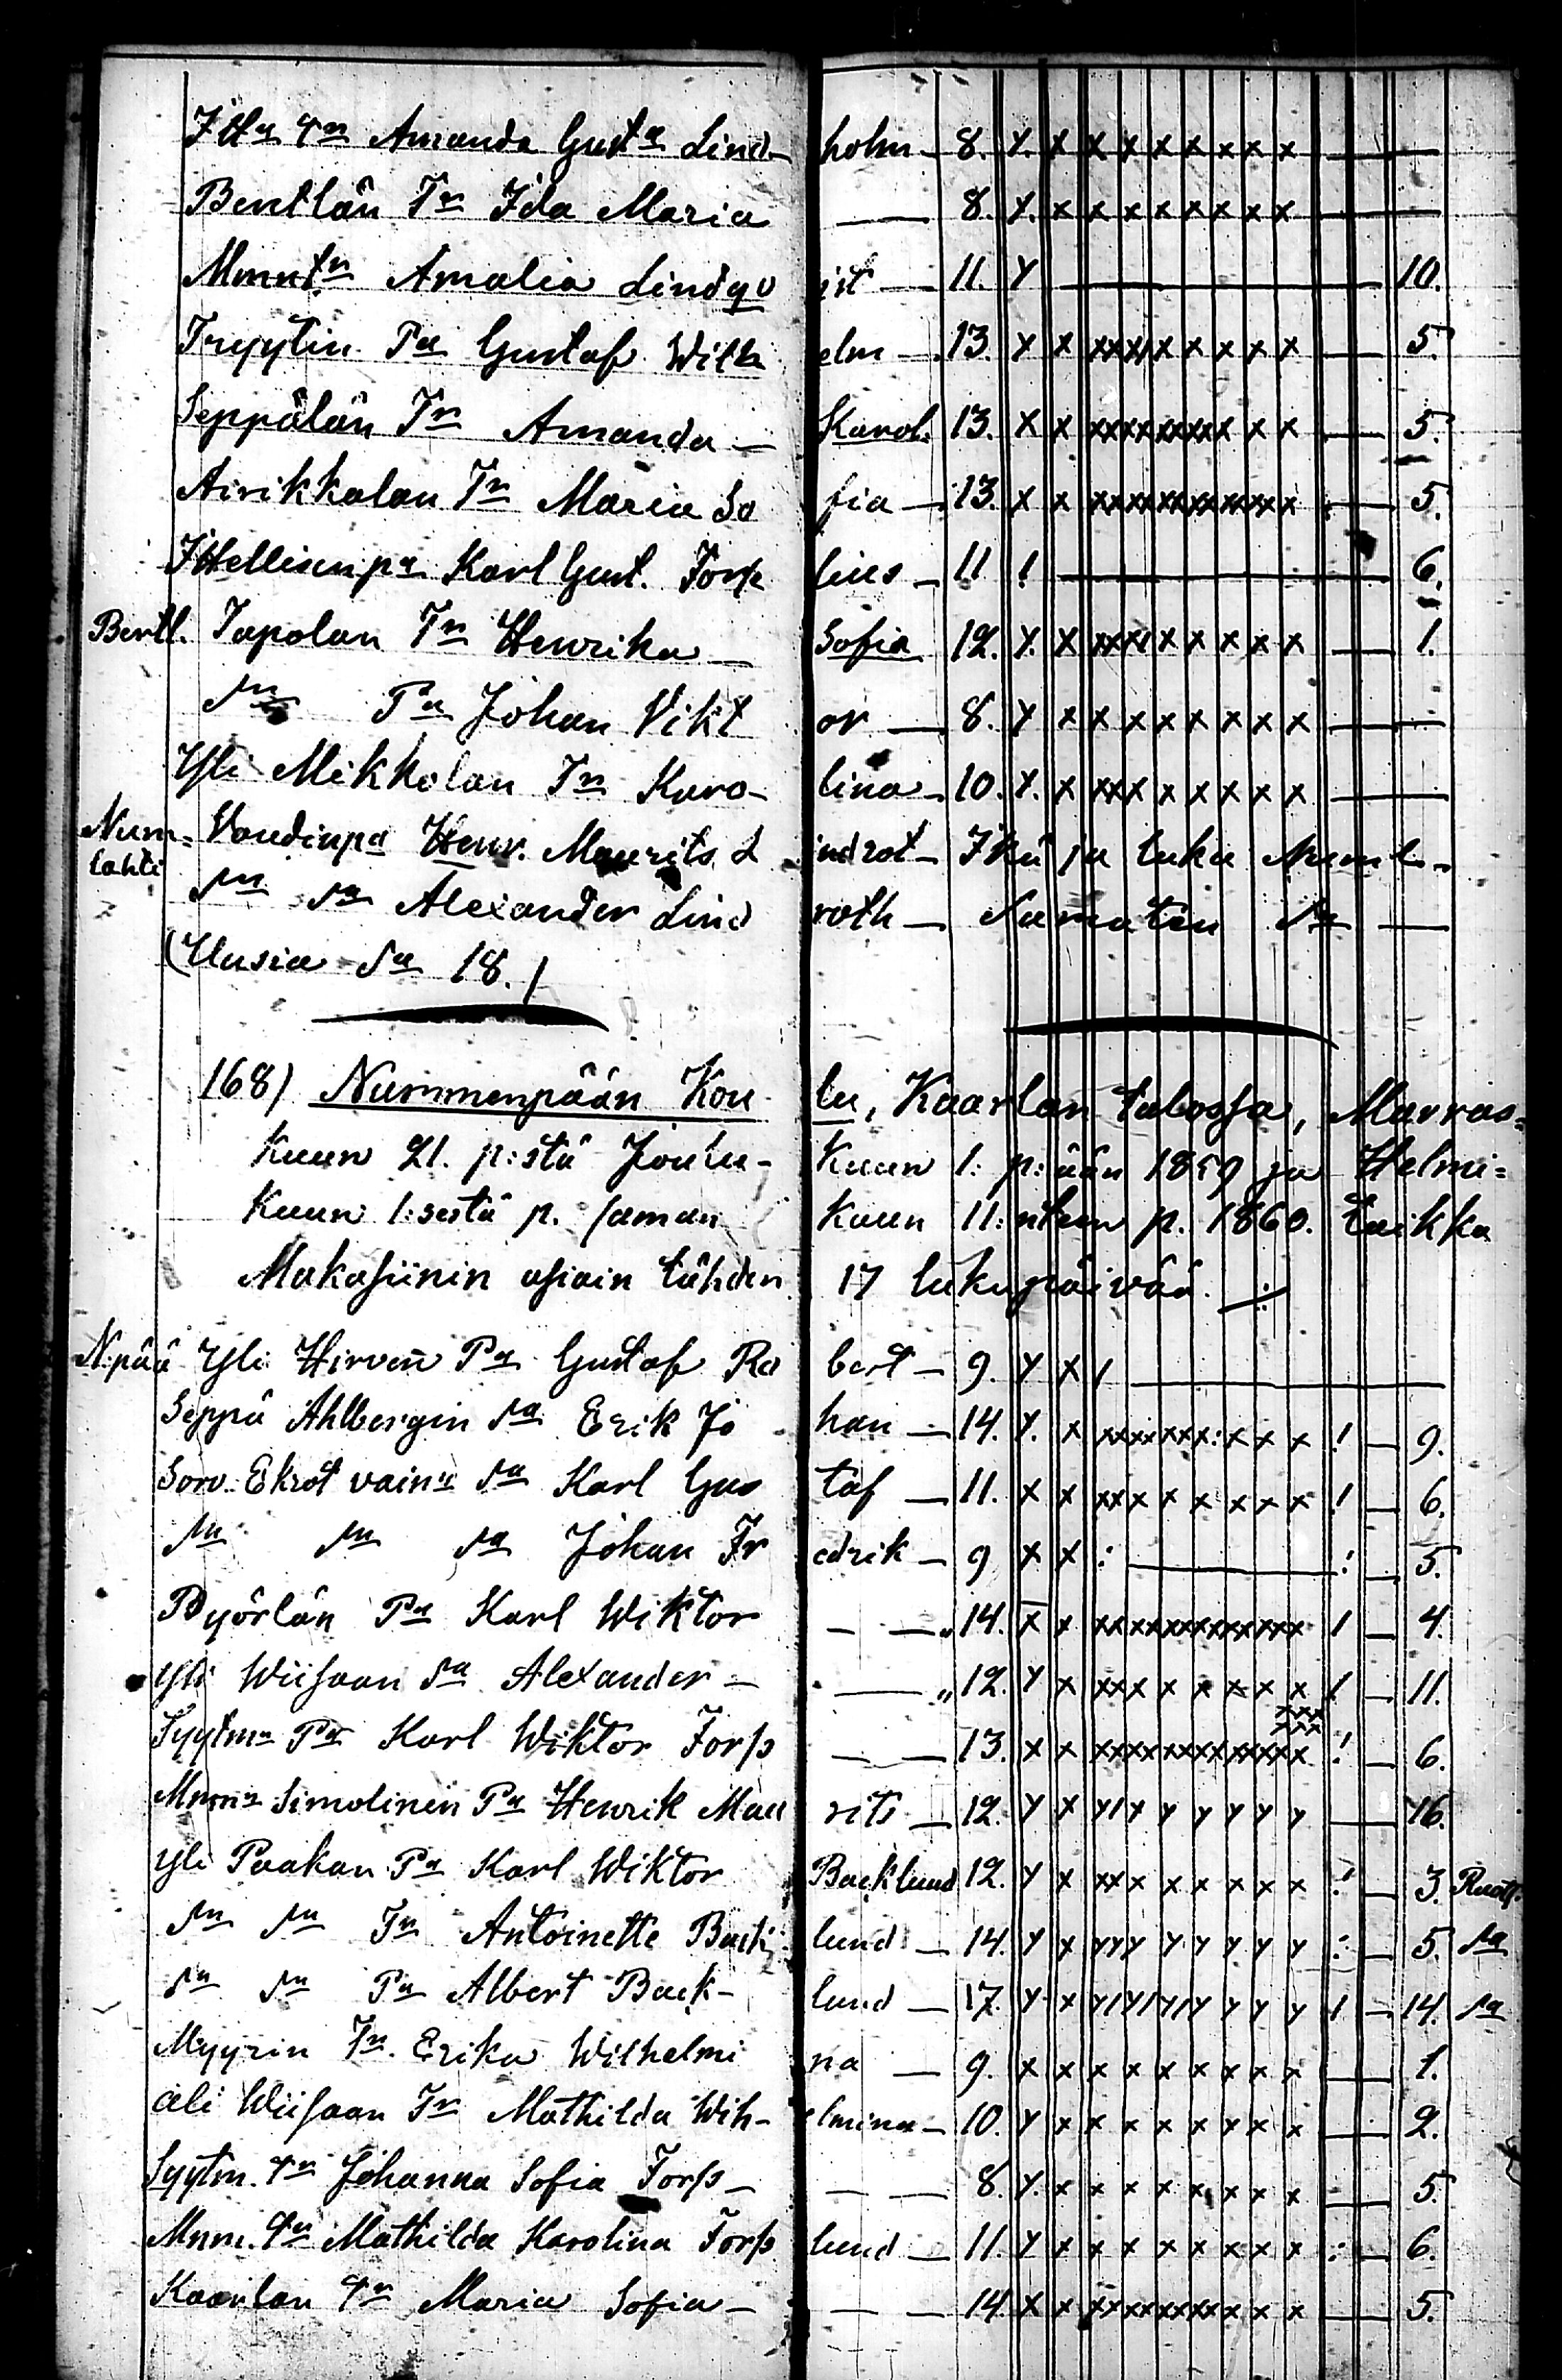 Itta Tr Amanda Gusta Lindholm 8. Y. x x x x x x x x
Benttlän Tr Ida Maria — 8. Y. x x x x x x x x
Mmnt:n Amalia Lindqvist — 11. Y — 10.
Tryytin Pa Gustaf Wilhelm — 13. Y x xxxx x x x x x — 5.
Seppälän Tr Amanda — Karol. 13. x x xxxxxxxxx x x — 5.
Airikkalan Tr Maria Sofia — 13. x x xxxxxxxxxxxx — 5.
Hellisen pa Karl Gust. Forselius — 11 ! — 6.
Bertl. Tapolan Tr Henrika — Sofia 12. Y. x xxxx x x x x x — 1.
sn Pa Johan Viktor — 8. Y x x x x x x x x —
Yli Mikkolan Tr Karolina — 10. Y. x xxx x x x x x —
Numlahti Voudin pa Henr. Maurits Lindrot — Ikä ja luku Numl.
sn sa Alexander Lindroth — Samaten sa —
(Uusia sa 18.)
168) Nummenpään Koulu, Kaarlan talossa, Marraskuun
21. p:stä Joulukuun 1: p:ään 1859 ja Helmikuun
1:sestä p. saman Kuun 11:nteen p. 1860. Taikka
Makasiinin asiain tähden 17 lukupäivää.
N:pää Yli Hirven Pa Gustaf Robert — 9. Y x / —
Seppä Ahlbergin sa Erik Johan — 14. Y. x xxxxxxx:x x x ! — 9.
Sorv. Ekrot vain: sa Karl Gustaf — 11. x x xxx x x x x x x ! — 6.
sn sn sa Johan Fredrik — 9 x x : — : — 5.
Pyörlän Pa Karl Wiktor — — 14. x x xxxxxxxxxxxxx / — 4.
Yli Wiisaan sa Alexander — — „ 12. Y x xxx x x x x x ! — 11.
Syytm: Pa Karl Wiktor Fors — — 13. x x xxxxxxxxxxxxx ! — 6.
Mmm: Simolinin Pa Henrik Maurits — 12. Y x y/x y y y y y — 16.
Yli Paakan Pa Karl Wiktor Backlund 12. Y x xxx x x x x x ! — 3. Ruots.
sn sn Tr Antoinette Backlund — 14. Y x yyy y y y y y : — 5. sa
sn sn Pa Albert Backlund — 17. Y x y/y/y/y y y y ! — 14. sa
Myyrin Tr. Erika Wilhelmina — 9. x x x x x x x x x — 1.
Ali Wiisaan Tr Mathilda Wilhelmina — 10. Y x x x x x x x x — 2.
Syytm. Tr Johanna Sofia Fors — — 8. Y. x x x x x x x x — 5.
Mmm. Tr Mathilda Karolina Forslund — 11. Y x x x x x x x x : — 6.
Kaarlan Tr Maria Sofia — — 14. x x xxxxxxxxx x x — 5.